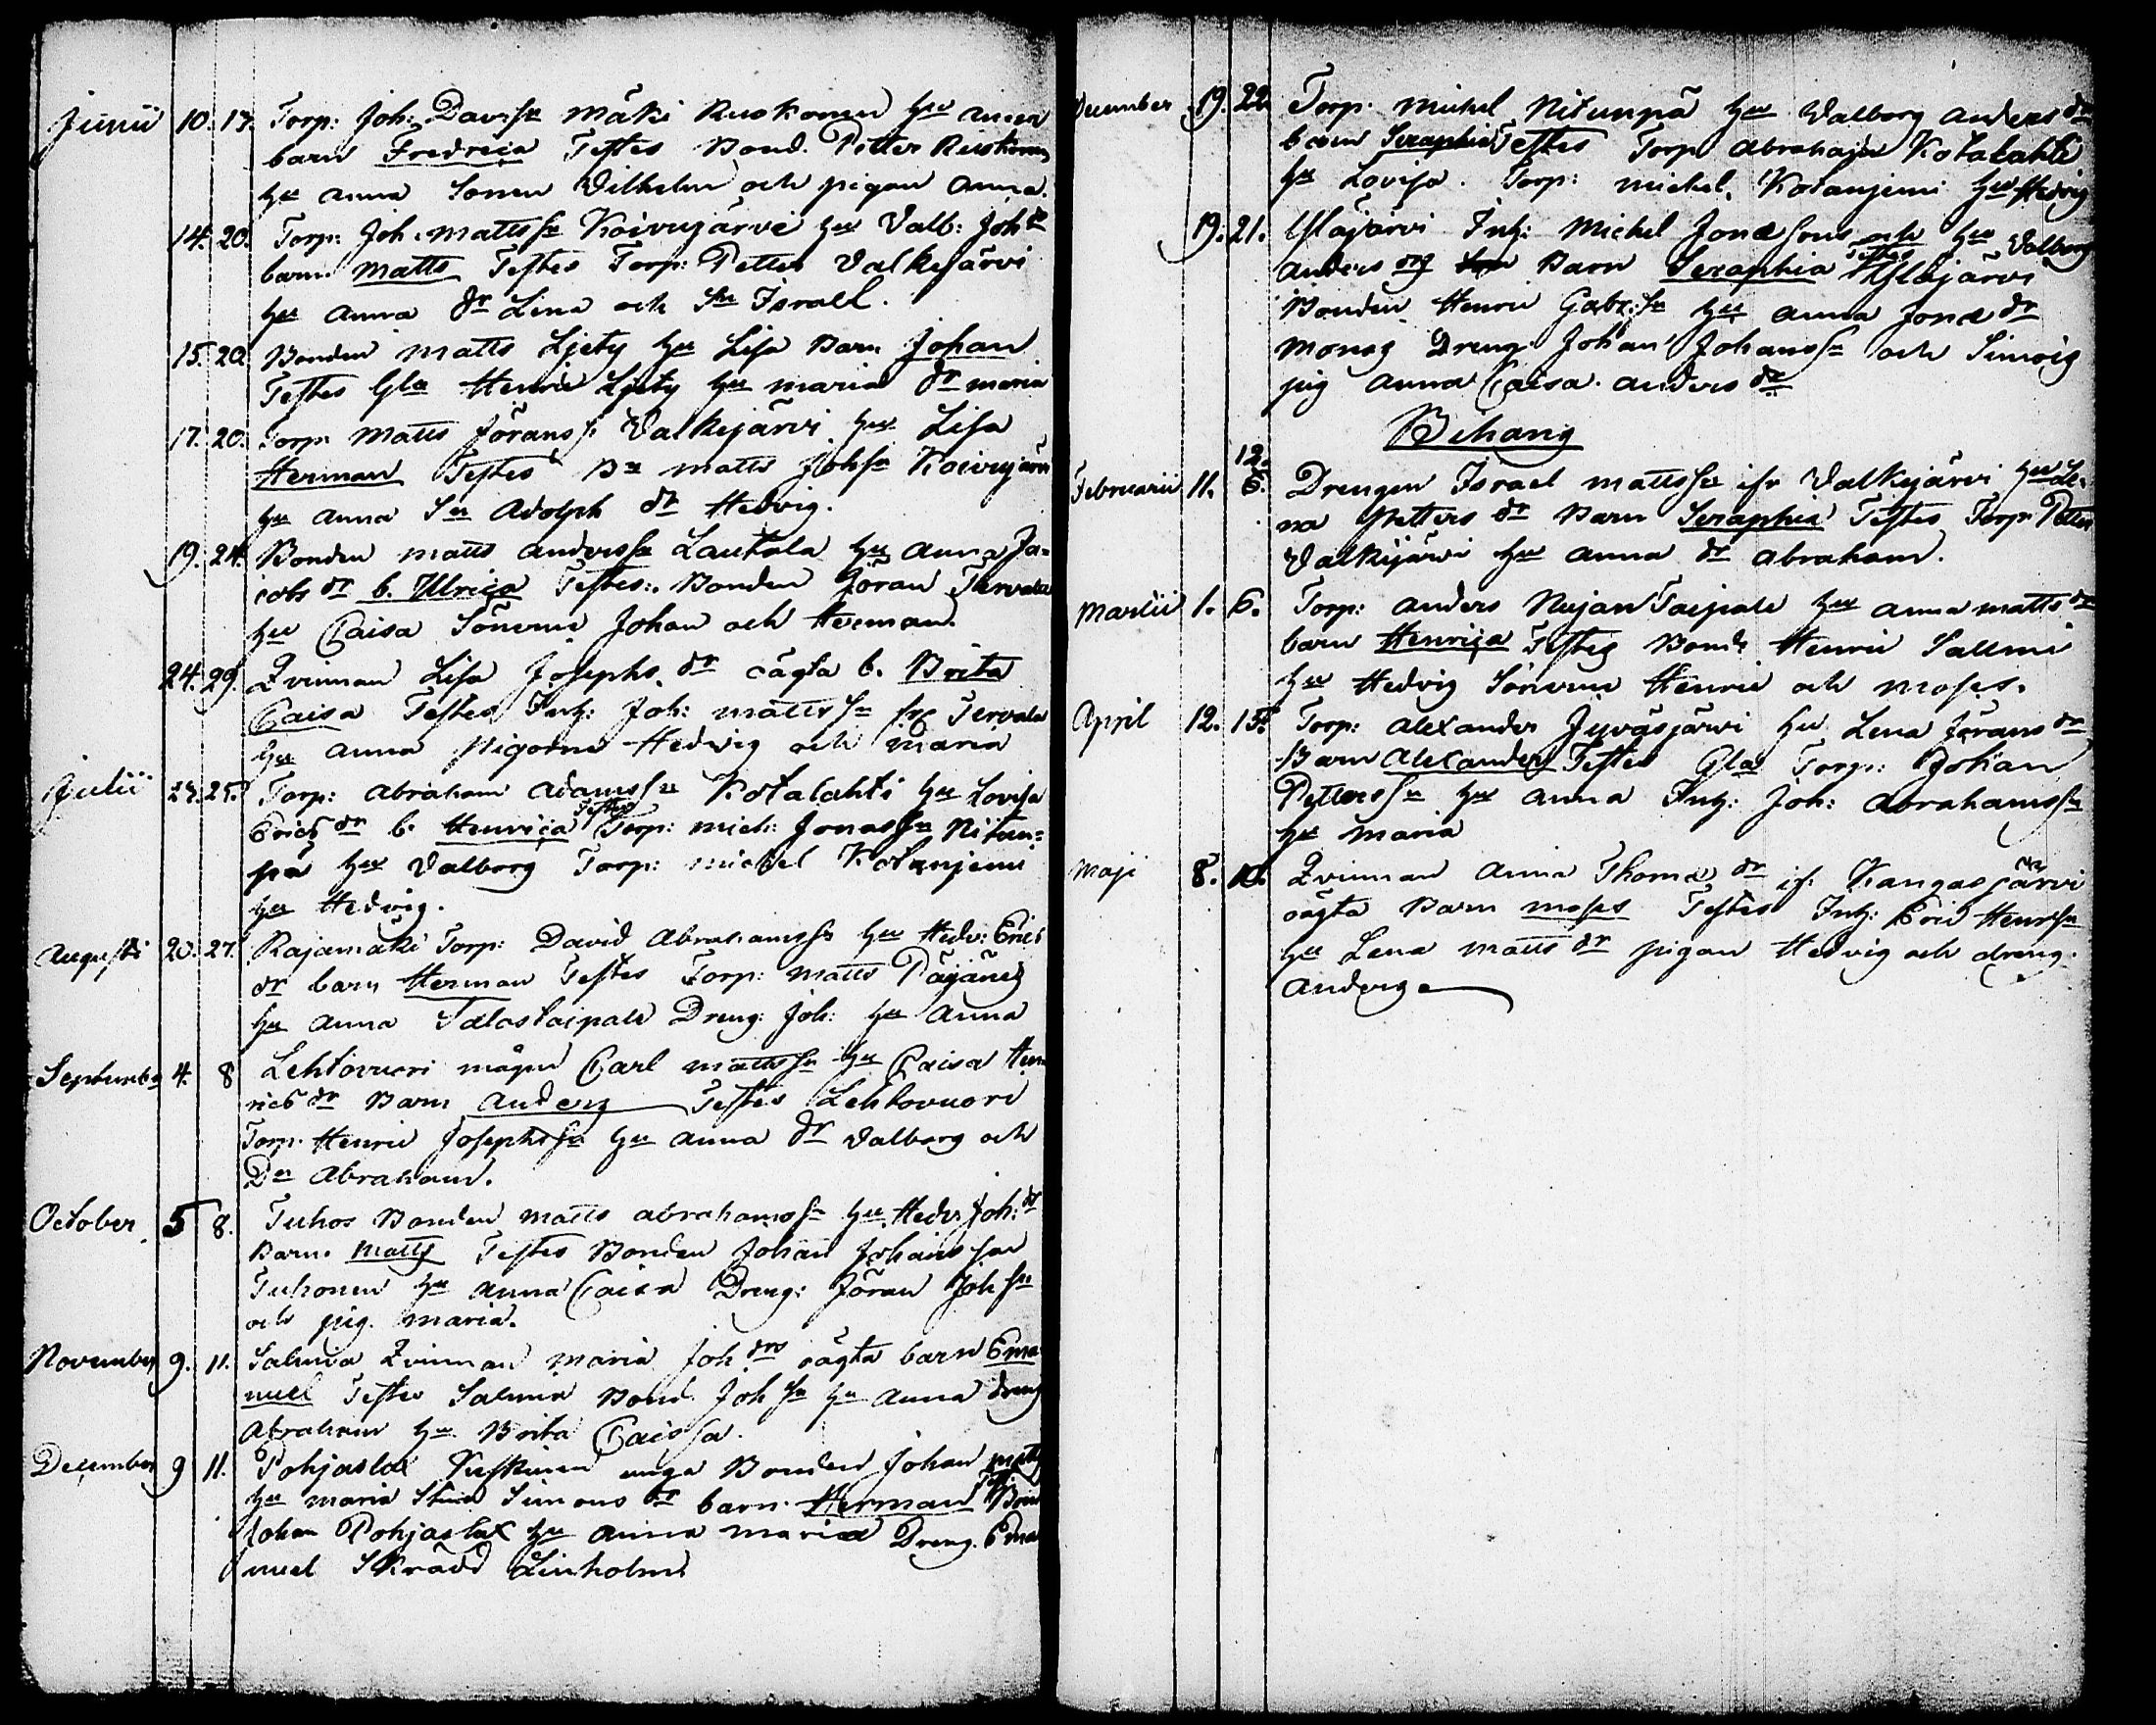 Junii 10. 17. Torp: Joh: Davidss Mäki Ruskonen hu Anna
barn Fredrica Testes Bond. Petter Ruskonen
hu Anna Sonen Vilhelm och pigan Anna.
14. 20. Torp: Joh. Mattsson Koivujärvi hu Valb: Joh dr
barn Matts Testes Torp: Petter Valkejärvi
hu Anna dr Lena och Sn Israel.
15. 20 Bonden Matts Ljety hu Lisa Barn Johan
Testes Gla Henric Ljety hu Maria dr Maria
17. 20. Torp. Matts Jöranss Valkejärvi hu Lisa
Herman Testes Matts Johsn Koivujärvi
hu Anna Sn Adolph dr Hedvig.
19. 24. Bonden Matts Anderssn Lautala hu Anna Ja=
cobs dr b. Ulrica Testes: Bonden Jöran Tervala
hu Caisa Sönerne Johan och Herman.
24. 29. Qvinnan Lisa Josephs dr oägta b. Brita
Caisa Testes Inh: Joh: Mattssn Tervala
hu Anna Pigorna Hedvig och Maria
Julii 24. 25. Torp: Abraham Adamssn Kotalahti hu Lovisa
Erics dr b. Henrica Testes Torp: Mich: Jonassn Nitun=
pä hu Valborg Torp: Michel Kotanjemi
hu Hedvig.
Augusti 20. 27. Rajamäki Torp: David Abrahamss hu Hedv: Erics
dr barn Herman Testes Torp: Matts Päjänes
hu Anna Talastaipale Dreng: Joh: hu Anna
September 4. 8 Lehtovuori mågen Carl Mattssn hu Caisa Hen
rics dr Barn Anders Testes Lehtovuori
Torp. Henric Josephssn hu Anna dr Valborg och
Dn Abraham.
October 5 8. Tuhos Bonden Matts Abrahamssn hu Hedv Joh: dr
Barn. Matts Testes Bonden Johan Johansson
Tuhonen hu Anna Caisa Dreng: Jöran Joh sn
och pig. Maria.
November 9. 11. Salmia Qvinnan Maria Joh drs oägta barn Ema
nuel Testes Salmia Bond. Joh sn hu Anna dreng
Abraham hu Brita Caissa.
December 9 11. Pohjaslax unga Bonden Johan Matts
hu Maria Simons dr barn. Herman Bond
Johan Pohjaslax hu Anna Maria Dreng. Ema
nuel Skrädd Linholm
December 19. 22. Torp. Michel Nitunpä hu Valborg Anders dr
barn Seraphia Testes Torp. Abraham Kotalahti
hu Lovisa. Torp: Michel. Kotanjemi hu Hedvig
19. 21. Yläjärvi Inh: Michel Jonæ sons och hu Valborg
Anders Barn Seraphia Testes Yläjärvi
Bonden Henric Gabr: sn hu Anna Jonæ dr
Dreng Johan Johanssn och
pig Anna Caisa. Anders dr
Bihang
Februarii 11. 12. 6. Drengen Israel Mattssn ifr Valkejärvi hu Le=
na Petters dr Barn Seraphia Testes Torp Petter
Valkejärvi hu Anna dr Abraham.
Martii 1. 6. Torp: Anders Nujan Taipale hu Anna Matts dr
barn Henrica Testes Bond: Henric Sallmi
hu Hedvig Sönerne Henric och Moses.
April 12. 15. Torp: Alexander Jyväsjärvi hu Lena Jörans dr
Barn Alexander Testes Gla Torp: Johan
Petterssn hu Anna Inh: Joh: Abrahamssn
hu Maria
Maji 8. 10. Qvinnan Anna Thomæ dr if. Kangasjärvi
oägta Barn Moses Testes Inh: Eric Henrssn
hu Lena Matts dr pigan Hedvig och dreng.
Anders